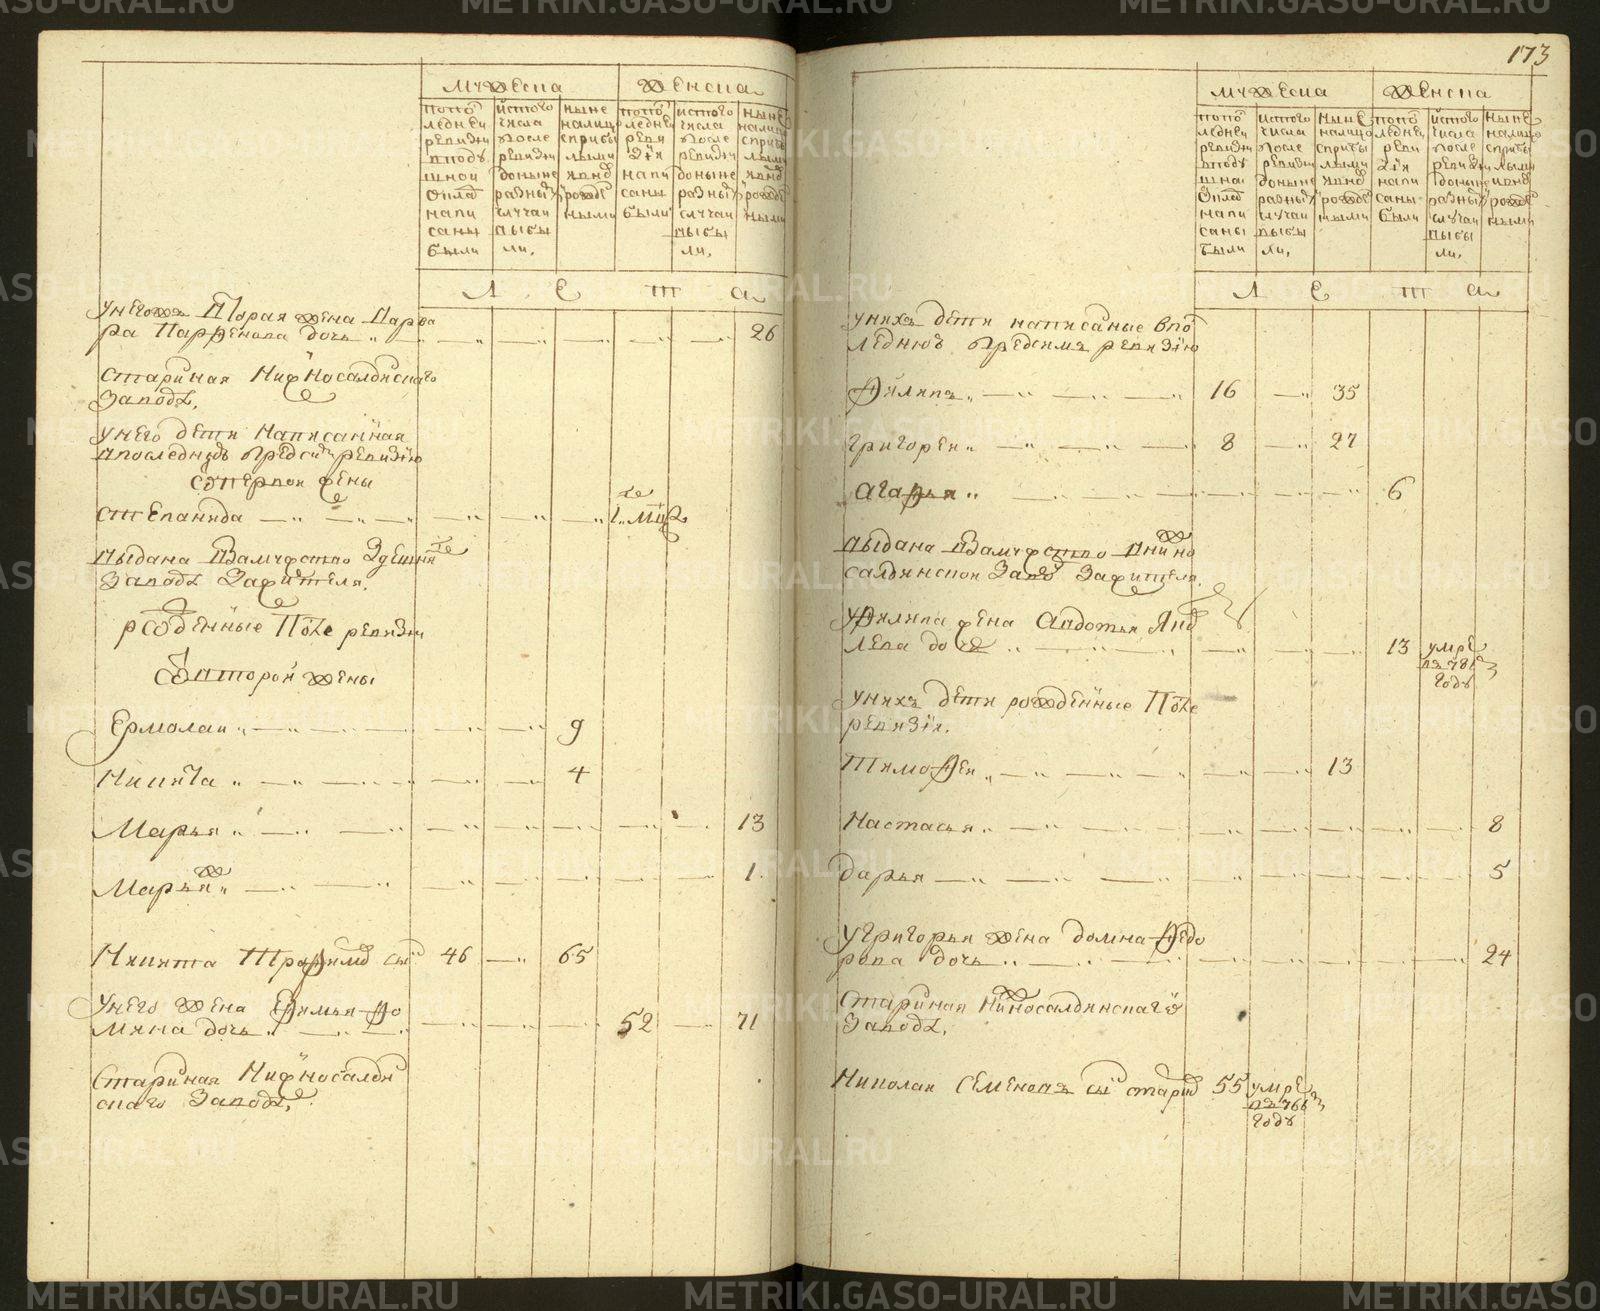 173
мужеска
женска
попо
следней
ревизии
вподу
шной
оклад
напи
саны
были
истого
числа
после
ревизии
доныне
разных
случаи
выбы
ли,
ныне
налицо
сприбы
лыми
ивно
рожде
ными
попо
следней
реви
зiи
напи
саны
были
истого
числа
после
ревизии
доныне
разных
случаи
выбы
ли,
ныне
налицо
сприбы
лыми
ивно
рожде
ными
Л Е Т а
унегожъ вторая жена варва
ра Парфенова дочь 26
старинная Нижносалдинскаго
заводу,
унего дети написанная
впоследнюю предсимъ ревизию
сопервой жены
степанида 1 мц
выдана взамужство здешня
заводу жителя,
рожденные после ревизии
Совторой жены
Ермолаи 9
Никита 4
Марья 13
Марья ж 1
Никита Трофимов сын 46 65
унего жена Ефимья Фо
мина дочь 52 71
старинная Нижносалди
нскаго заводу,
мужеска
женска
попо
следней
ревизии
вподу
шной
оклад
напи
саны
были
истого
числа
после
ревизии
доныне
разных
случаи
выбы
ли,
ныне
налицо
сприбы
лыми
ивно
рожде
ными
попо
следней
реви
зiя
напи
саны
были
истого
числа
после
ревизии
доныне
разных
случаи
выбы
ли,
ныне
налицо
сприбы
лыми
ивно
рожде
ными
Л Е Т а
унихъ дети написаные впо
следнюю предсимъ ревизiю
Филипъ 16 35
григореи 8 27
агафья 6
выдана взамужство внижно
салдинской заво жителя,
уфилипа жена авдотья Яко
влева дочь 13 умре
въ 781
году
унихъ дети рожденные После
ревизiи,
Тимофеи 13
Настасья 8
дарья 5
угригорья жена домна Федо
рова дочь 24
старинная Нижносалдинскаго
заводу,
Николаи семеновъ сын старин 55 умре
въ 766
году
METRIKI.GASO-URAL.RU